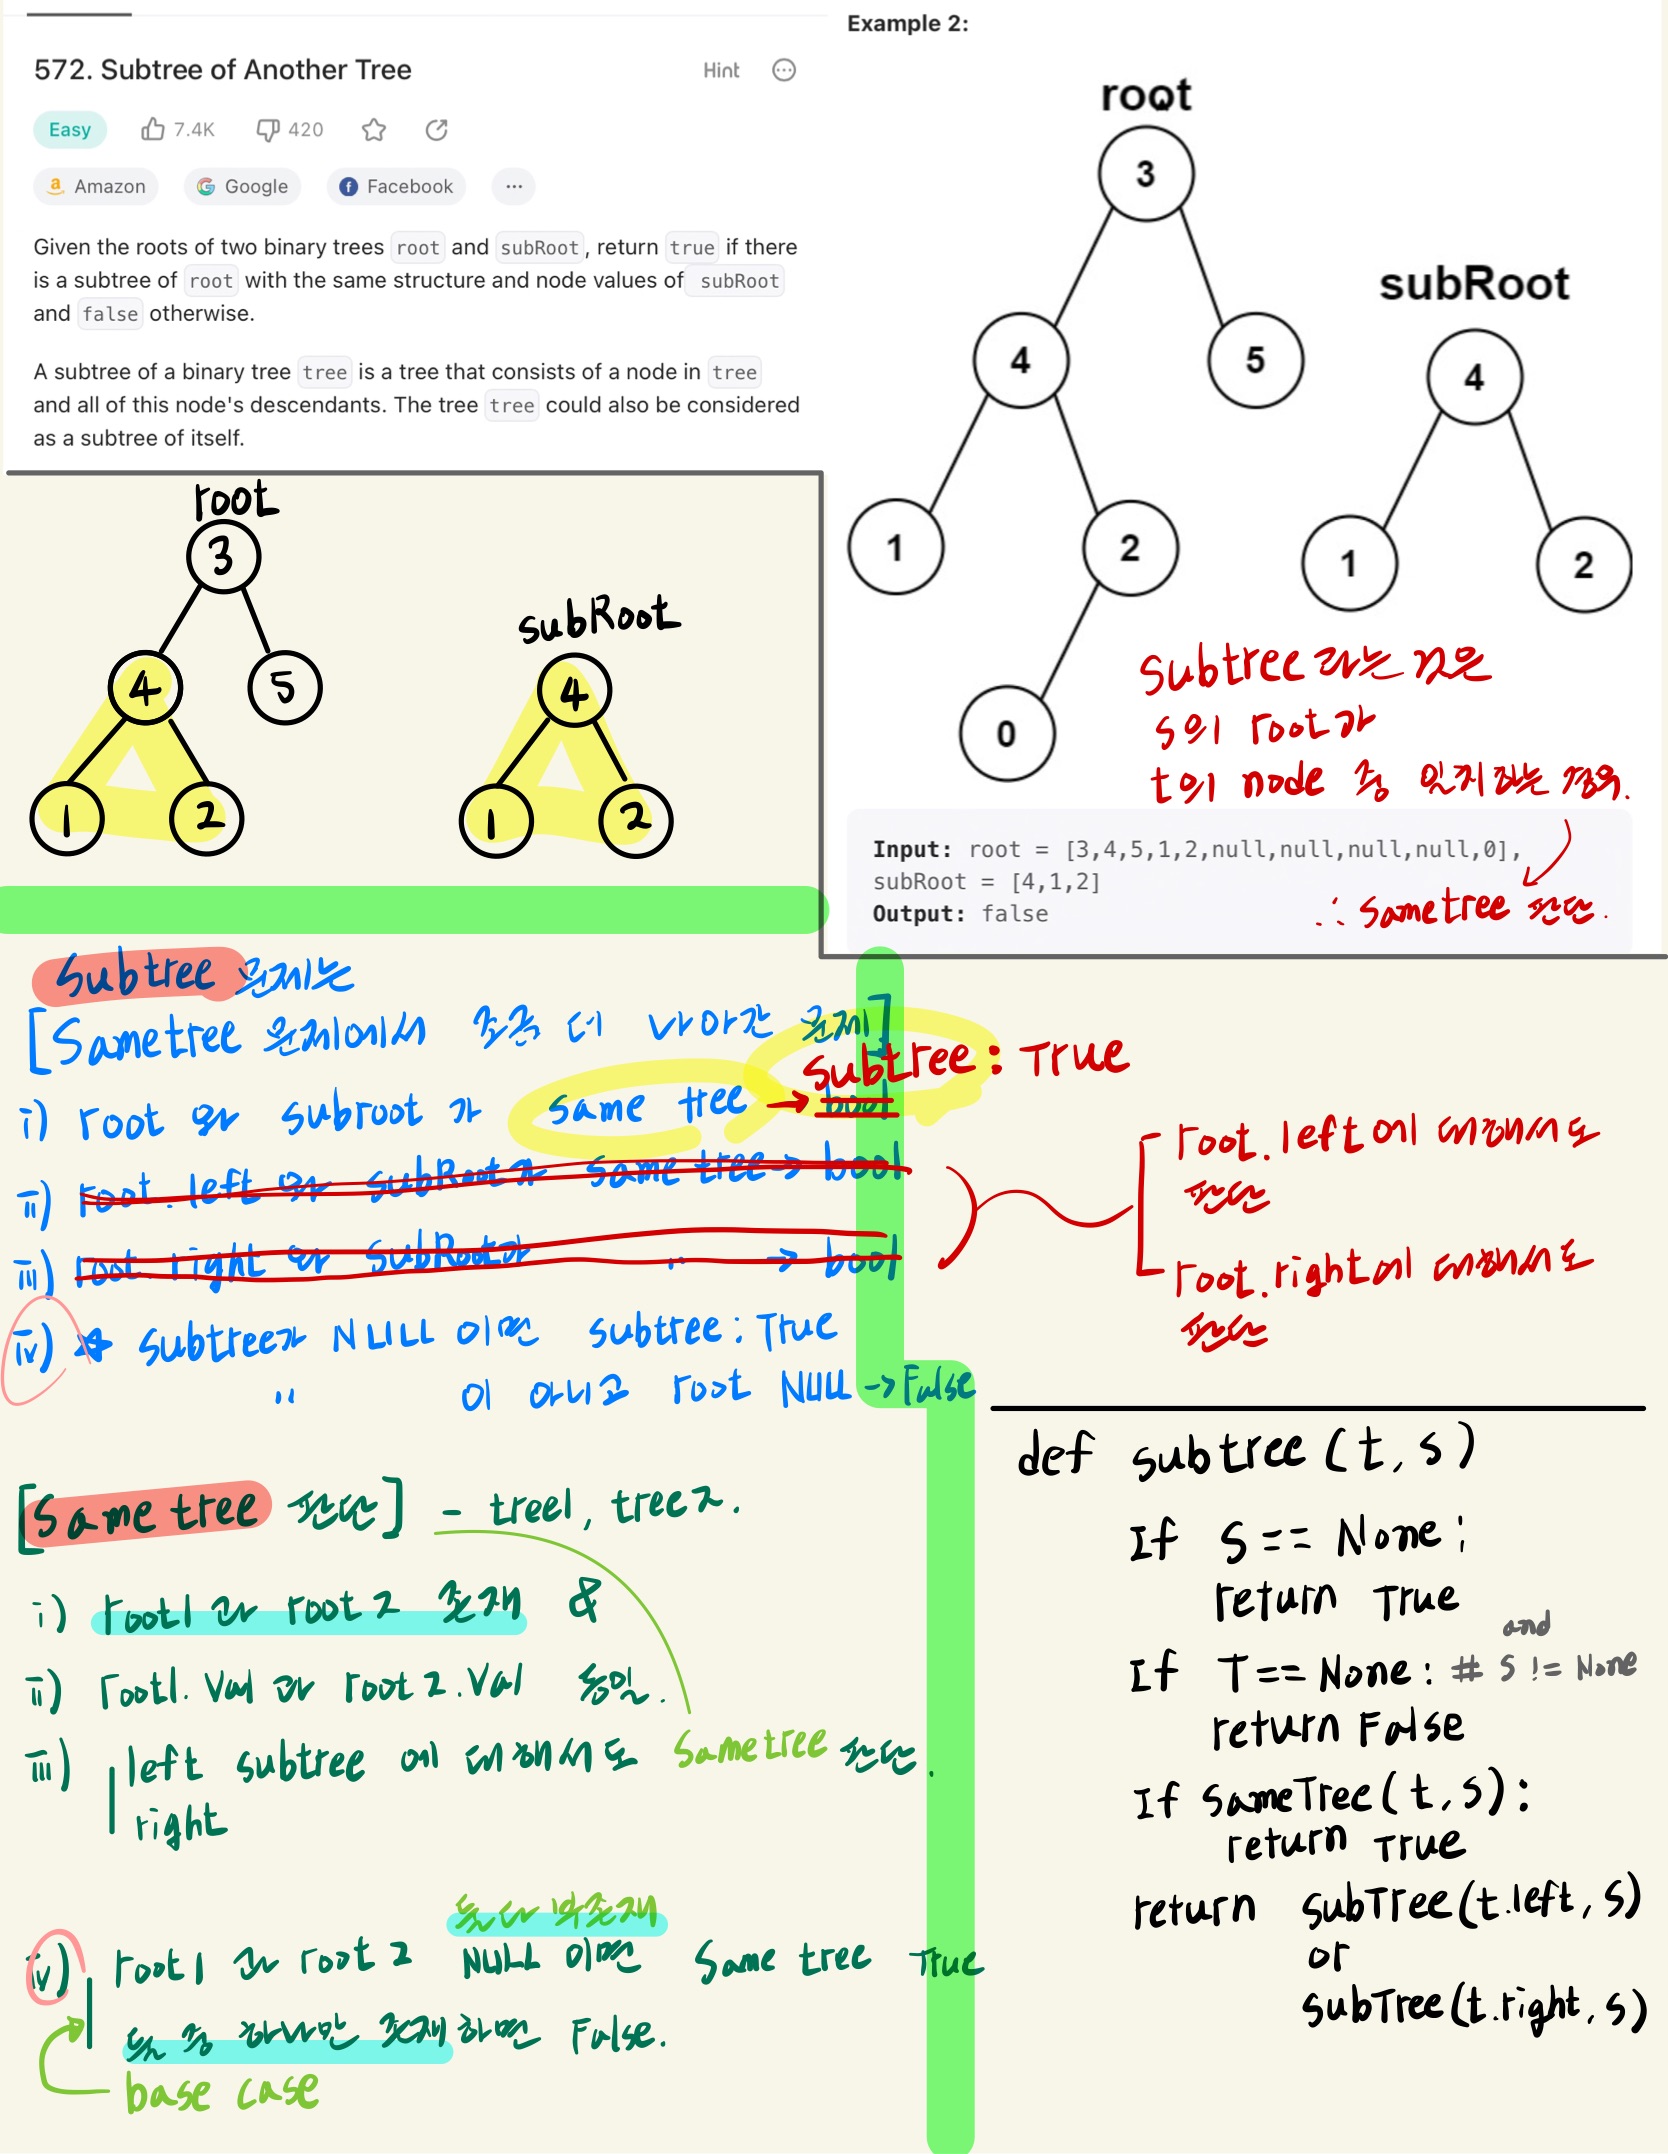 572. Subtree of Another Tree
Hint
Easy
7.4K
420
Amazon
Google
Facebook
Given the roots of two binary trees root and subRoot, return true if there
is a subtree of root with the same structure and node values of subRoot
and false otherwise.
A subtree of a binary tree tree is a tree that consists of a node in tree
and all of this node's descendants. The tree tree could also be considered
as a subtree of itself.
Example 2:
root
3
4
5
1
2
0
subRoot
4
1
2
Subtree 라는 것은
s의 root과
t의 node 중 일치하는 경우.
Input: root = [3,4,5,1,2,null,null,null,null,0],
subRoot = [4,1,2]
Output: false
∴ Sametree 판단.
root
3
4
5
1
2
subRoot
4
1
2
Subtree 문제는
[Sametree 문제에서 조금 더 나아간 문제]
Subtree: True
i) root 와 subroot 가 same tree → bool
ii) root.left 와 subRoot가 same tree → bool
iii) root.right 와 subRoot가 〃 → bool
root.left에 대해서도
판단
root.right에 대해서도
판단
iv) * subtree가 NULL 이면 subtree: True
〃 이 아니고 root NULL → False
[Same tree 판단] - tree1, tree2.
i) root1 과 root2 존재 &
ii) root1.val 과 root2.val 동일.
iii) left subtree 에 대해서도 Sametree 판단.
right
둘 다 부존재
iv) root1 과 root2 NULL 이면 Same tree True
둘 중 하나만 존재하면 False.
base case
def subtree(t, s)
If S == None:
return True
and
If T == None: # S != None
return False
If SameTree(t, s):
return True
return SubTree(t.left, s)
or
SubTree(t.right, s)